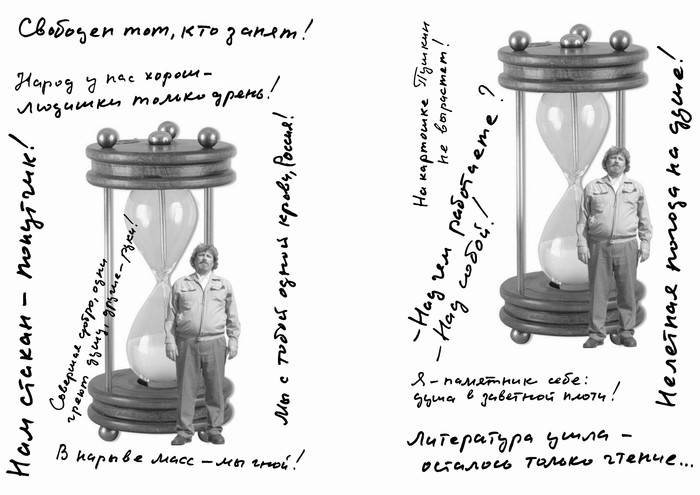 Свободен тот, кто занят!
Народ у нас хорош –
людишки только дрень!
Нам стакан – попутчик!
Совершая добро, одни
греют душу, другие – руки!
Мы с тобой одной крови, Россия!
В нарыве масс – мы гной!
На картошке Пушкин
не вырастет!
– Над чем работаете?
– Над собой!
Нелетная погода на душе!
Я – памятник себе:
душа в заветной плоти!
Литература ушла –
осталось только чтение...